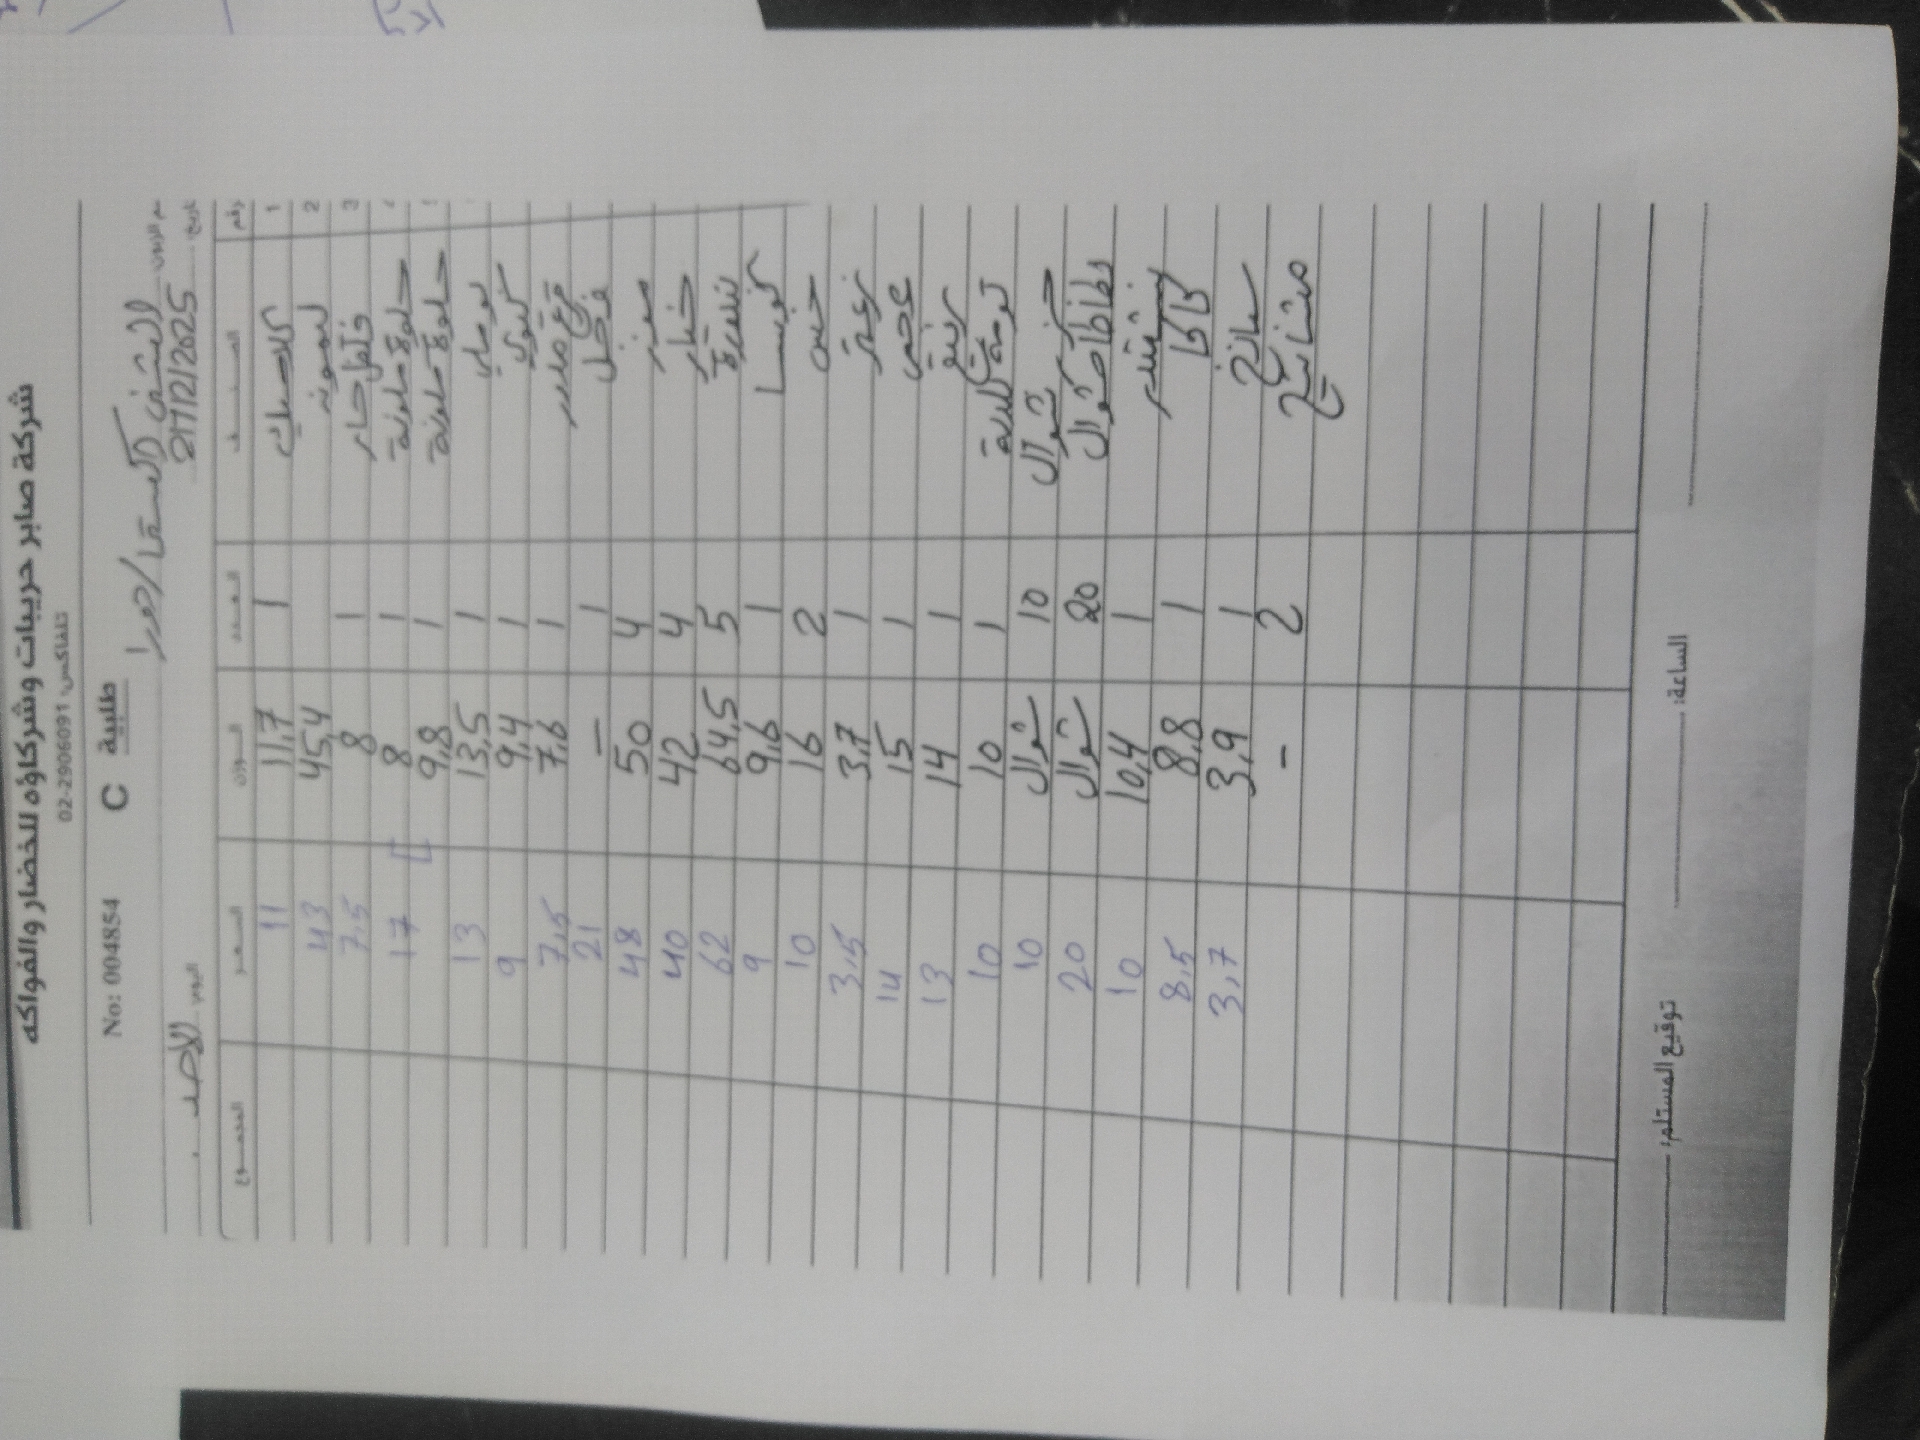 شركة صابر حريبات وشركاؤه للخضار والفواكه
تلفاكس: 02-2906091
No: 004854 C طلبية
المستشفى الاستشاري
اليوم: الأحد 21/12/2025
رقم الصنف العدد الوزن السعر المجموع
1 1 11,7 11
2 ليمون 45,4 43
3 فلفل حار 1 8 7,5
حلوة ملونة 1 8 17
حلوة ملونة 1 9,8
بوملي 1 13,5 13
كيوي 1 9,4 9
قرع 1 7,6 7,5
فجل 1 - 21
موز 4 50 48
خيار 4 42 40
بندورة 5 64,5 62
كوسا 1 9,6 9
خس 2 16 10
1 3,7 3,5
1 15 14
1 14 13
1 10 10
جزر شوال 10 شوال 10
بطاطا شوال 20 شوال 20
1 10,4 10
كاكا 1 8,8 8,5
سبانخ 1 3,9 3,7
2 -
توقيع المستلم: الساعة: